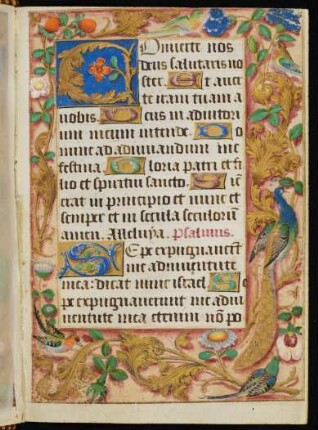 Onverte nos
deus salutaris no
ster. Et aver
te iram tuam a
nobis. Deus in adiutori
um meum intende. Do
mine ad adiuvandum me
festina. Gloria patri et fi
lio et spiritui sancto. Sic
erat in principio et nunc et
semper et in secula seculorum
amen. Alleluya. Psalmus.
Sepe expugnaverunt
me a iuventute
mea: dicat nunc israel. Se
pe expugnaverunt me a iu
ventute mea etenim non po